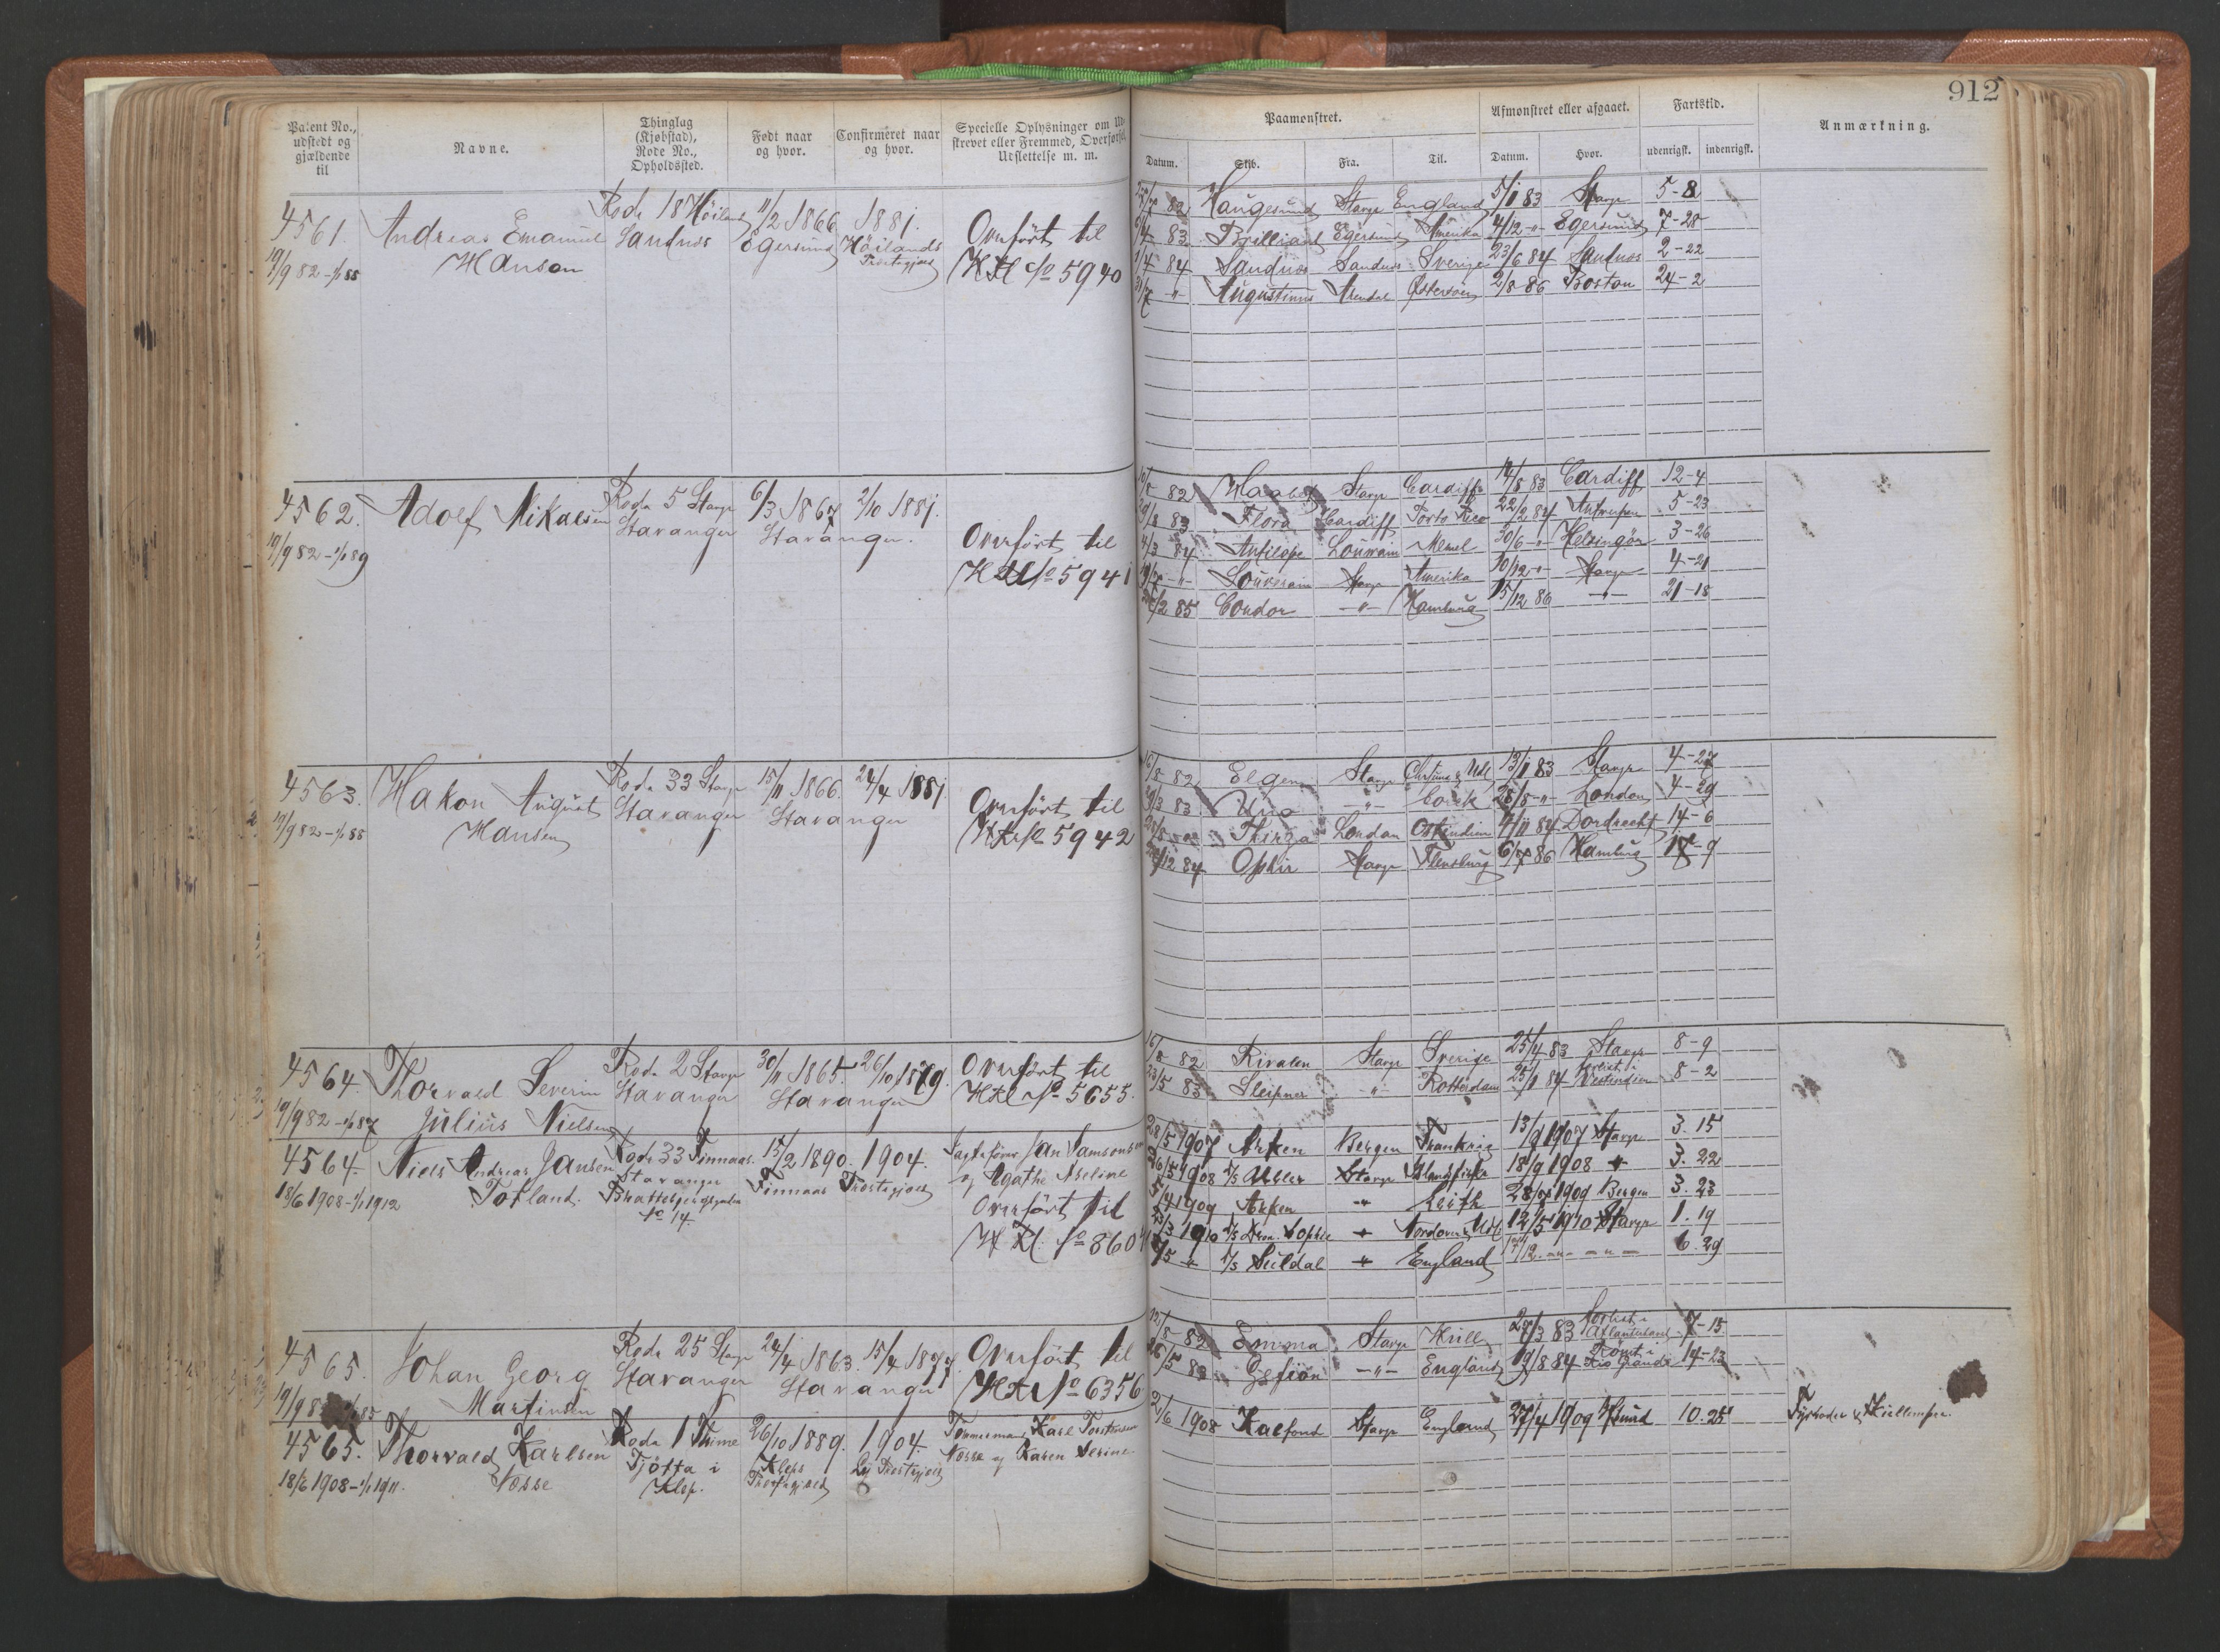 912
Patent No., udstedt og gjældende til
Navne.
Thinglag (Kjøbstad), Rode No., Opholdssted.
Født naar og hvor.
Confirmeret naar og hvor.
Specielle Oplysninger om
skrevet eller Fremmed, Overførsel
Udslettelse m. m.
Paamønstret.
Afmønstret eller afgaaet.
Fartstid.
Anmærkning.
Datum. Skib. Fra. Til. Datum. Hvor. udenrigsk. indenrigsk.
4561. Andreas Emanuel Rode 18 Höiland 11/2 1866 1881. Overført til
Sandnæs Egersund Höilands
19/9 82 - 1/1 88 Hanson Præstegjæld No 5940
82 Haugesund Stavgr England 5/1 83 Stavgr 5-8
83 Brilliant Egersund Amerika 4/12 -"- Egersund 7-28
84 Sandnæs Sandnæs Sverige 23/6 84 Sandnæs 2-22
-"- Augustinus Arendal Østersøen 2/8 86 Boston 24-2
4562. Adolf Mikalsen Rode 5 Stavgr 6/3 1867 2/10 1881.
Stavanger Stavanger. Overført til
19/9 82 - 1/1 89 No 5941
82 Haabet Stavgr Cardiff 14/8 83 Cardiff 12-4
83 Flora Cardiff Porto Rico 22/2 84 Antwerpen 5-23
4/3 84 Antilope Louvrain Memel 30/6 -"- Helsingör 3-26
-"- Stavgr Amerika 10/12 -"- Stavgr 4-21
85 Condor -"- Hamburg 15/12 86 -"- 21-18
4563. Hakon August Rode 33 Stavgr 15/11 1866. 24/4 1881.
Stavanger Stavanger Overført til
19/9 82 - 1/1 88 Hansen No 5942
82 Stavgr 13/1 83 Stavgr 4-27
83 Una -"- Cork 28/8 -"- London 4-29
Thirza London Ostindien 4/11 84 Dordrecht 14-6
12 84 Ophir Stavgr Flensburg 6/7 86 Hamburg 18-9
4564. Thorvald Severin Rode 2 Stavgr 30/11 1865. 26/10 1879. Overført til
Stavanger Stavanger No 5655.
19/9 82 - 1/1 87 Julius Nielsen
16/8 82 Rivalen Stavgr Sverige 25/4 83 Stavgr 8-9
23/5 83 Sleipner " Rotterdam 25/1 84 Forlist i Vestindien 8-2
4564. Niels Andreas Jansen Rode 33 Finnaas. 15/2 1890. 1904. Jan Samsonsen
Totland. Stavanger Finnaas Præstegjæld og Agathe Aseline
18/6 1908 - 1/1 1912 No 14. Overført til
No 860
28/5 1907 Arken Bergen Frankrig 13/9 1907 Stavgr 3. 15
26/5 1908 Stavgr Islandsfiske 18/9 1908 " 3. 22
5/4 1909 Arken " Leith 28/7 1909 Bergen 3. 23
1910 D/S Dron. Sophie " Nordover & Udl 12/5 1910 Stavgr 1. 19
5 " D/S Suldal " England 12 -"- -"- 6. 29
4565. Johan Georg Rode 25 Stavgr 24/4 1863. 15/4 1877. Overført til
Stavanger Stavanger No 6356
Martinsen
82 Emma Stavgr Hull 27/3 83 Forlist i Atlanterhavet 7-15
83 Gefion -"- England 19/8 84 Rømt i Rio Grande 14-23
4565. Thorvald Karlsen Rode 1 Thime 26/10 1889. 1904. Tømmermand Karl Torstensen
Næsse Tjötta i Kleps Lye Præstegjæld Næsse og Karen Serine
18/6 1908 - 1/1 1911. Klep. Præstegjæld
2/6 1908 Kalfond Stavgr England 27/4 1909 10. 25 Fyrbøder